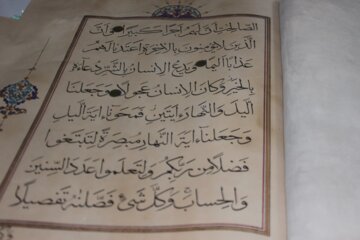 الصالحات أن لهم أجرا كبيرا وأن
الذين لا يؤمنون بالآخرة أعتدنا لهم
عذابا أليما ويدع الإنسان بالشر دعاءه
بالخير وكان الإنسان عجولا وجعلنا
الليل والنهار آيتين فمحونا آية الليل
وجعلنا آية النهار مبصرة لتبتغوا
فضلا من ربكم ولتعلموا عدد السنين
والحساب وكل شيء فصلناه تفصيلا